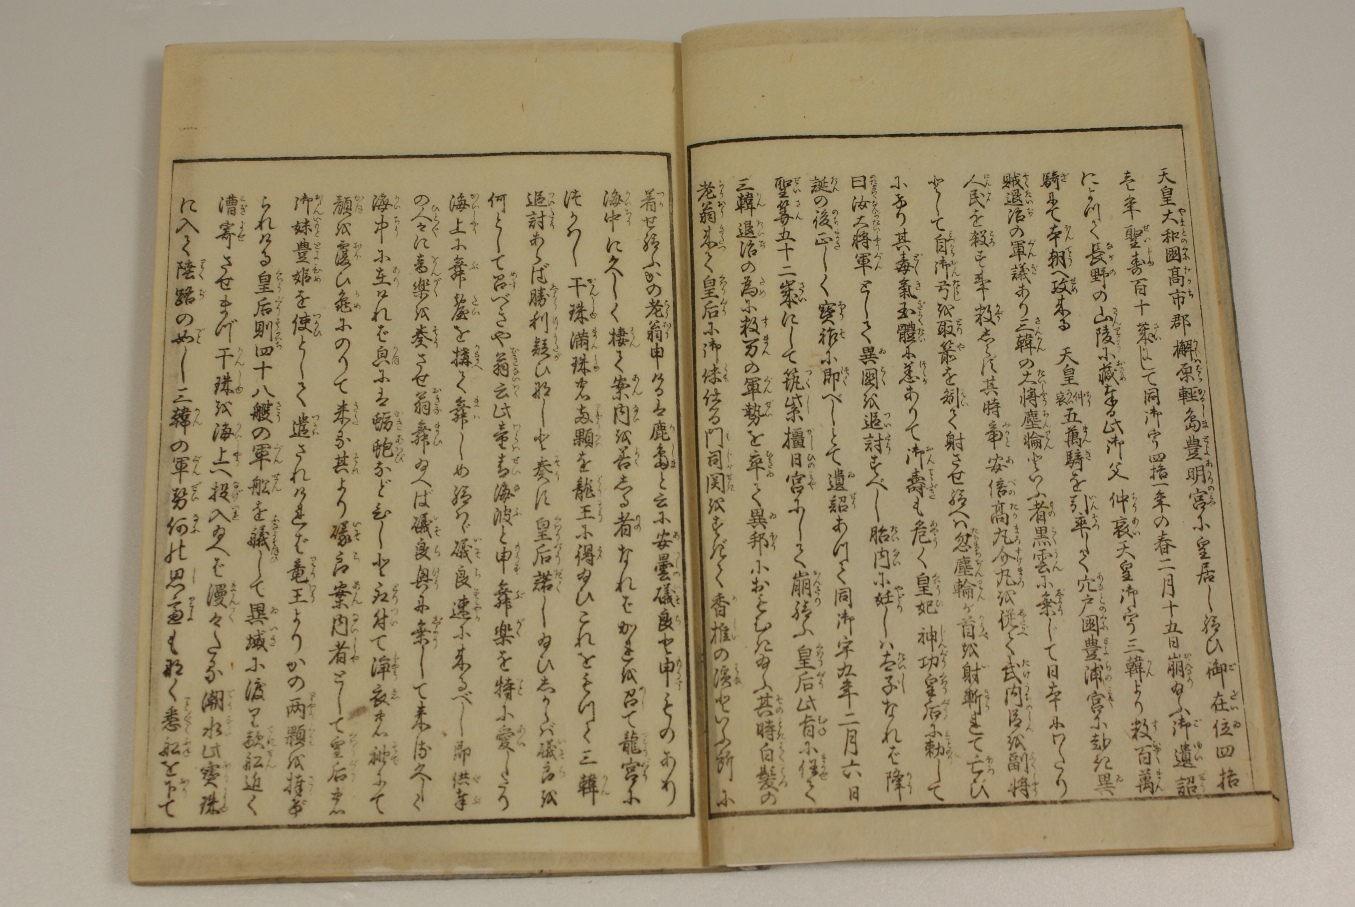 天皇大和國高市郡檞原輕島豊明宮に皇居し給ひ御在位四拾
壱年聖壽百十一歳にして同御宇四拾一年の春二月十五日崩給ふ御遺詔
によつて長野の山陵に藏奉る此御父仲哀天皇御宇三韓より数百萬
騎にて本朝へ攻来る天皇仲哀五萬騎を引率して穴戸國豊浦宮に
賊退治の軍議あり三韓の大将塵輪といふ者黒雲に乗じて日本にわたり
人民を殺す事数しらず其時安倍高丸介丸を従て武内臣を副将
として自御弓を取箭を射させ給へば忽塵輪が首を射斬れて亡ひ
にけり其毒氣玉體に恙ありて御壽も危く皇妃神功皇后に勅して
曰汝大将軍として異國を追討すべし胎内に妊しは太子なれは降
誕の後正しく寳祚に即べしとて遺詔あつて同御宇九年二月六日
聖算五十二歳にして筑紫橿日宮にして崩給ふ皇后此旨に任て
三韓退治の為に数万の軍勢を率て異邦におもむき給ふ其時白髪の
老翁来て皇后に御供仕る門司関をすぎて香椎の濱といふ所に
着せ給ふかの老翁申けるは鹿島と云に安曇磯良と申ものあり
海中に久しく棲て案内を善しる者なれはかれを召て龍宮に
つかはし干珠満珠の両顆を龍王に得給ひこれをもつて三韓
追討あらば勝利疑ひなしと奏に皇后諾し給ひしからば磯良を
何として召べきや翁云此青海波と申舞樂を特に愛したり
海上に舞臺を搆て舞しめ給はゞ磯良速に来るべし即供奉
の人々に音樂を奏させ翁舞給へば磯良輿に乗して来
海中に在けれは身には蛎鮑などひしと取付て浄衣の袖にて
顔を覆ひ亀にのりて来る其より磯良案内者として皇后の
御妹豊姫を使として遣されければ竜王よりかの両顆を捧奉
られける皇后則四十八艘の軍舩を艤して異域に渡り敵舩近く
漕寄させ給ひ干珠を海上へ投入給へば漫々たる潮水此寳珠
に入て陸路の如し三韓の軍勢何の思慮もなく悉舩を下て